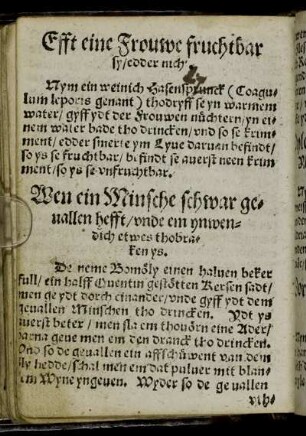 Efft eine Frouwe fruchtbar
sy/edder nich.
Nym ein weinich Hasensprunck (Coagu-
lum leporis genant) thodryff se yn warmem
water/gyff ydt der Frouwen nüchtern/yn ei-
nem water bade tho drincken/vnd so se krim-
ment/edder smerte ym Lyue daruan befindt/
so ys se fruchtbar/befindt se auerst neen krim
ment/so ys se vnfruchtbar.
Wen ein Minsche schwar ge-
uallen hefft/vnde em ynwen-
dich etwes thobra-
ken ys.
De neme Bomöly einen haluen beker
full/ein halff Quentin gestötten Kersen sadt/
men ge ydt dorch einander/vnde gyff ydt dem
geuallen Minschen tho drincken. Ydt ys
auerst beter/men sla em thouörn eine Ader/
darna geue men em den dranck tho drincken.
Vnd so de geuallen ein affschüwent van dem
Oly hedde/schal men em dat puluer mit blan-
kem Wyne yngeuen. Wyder so de geuallen
vth-